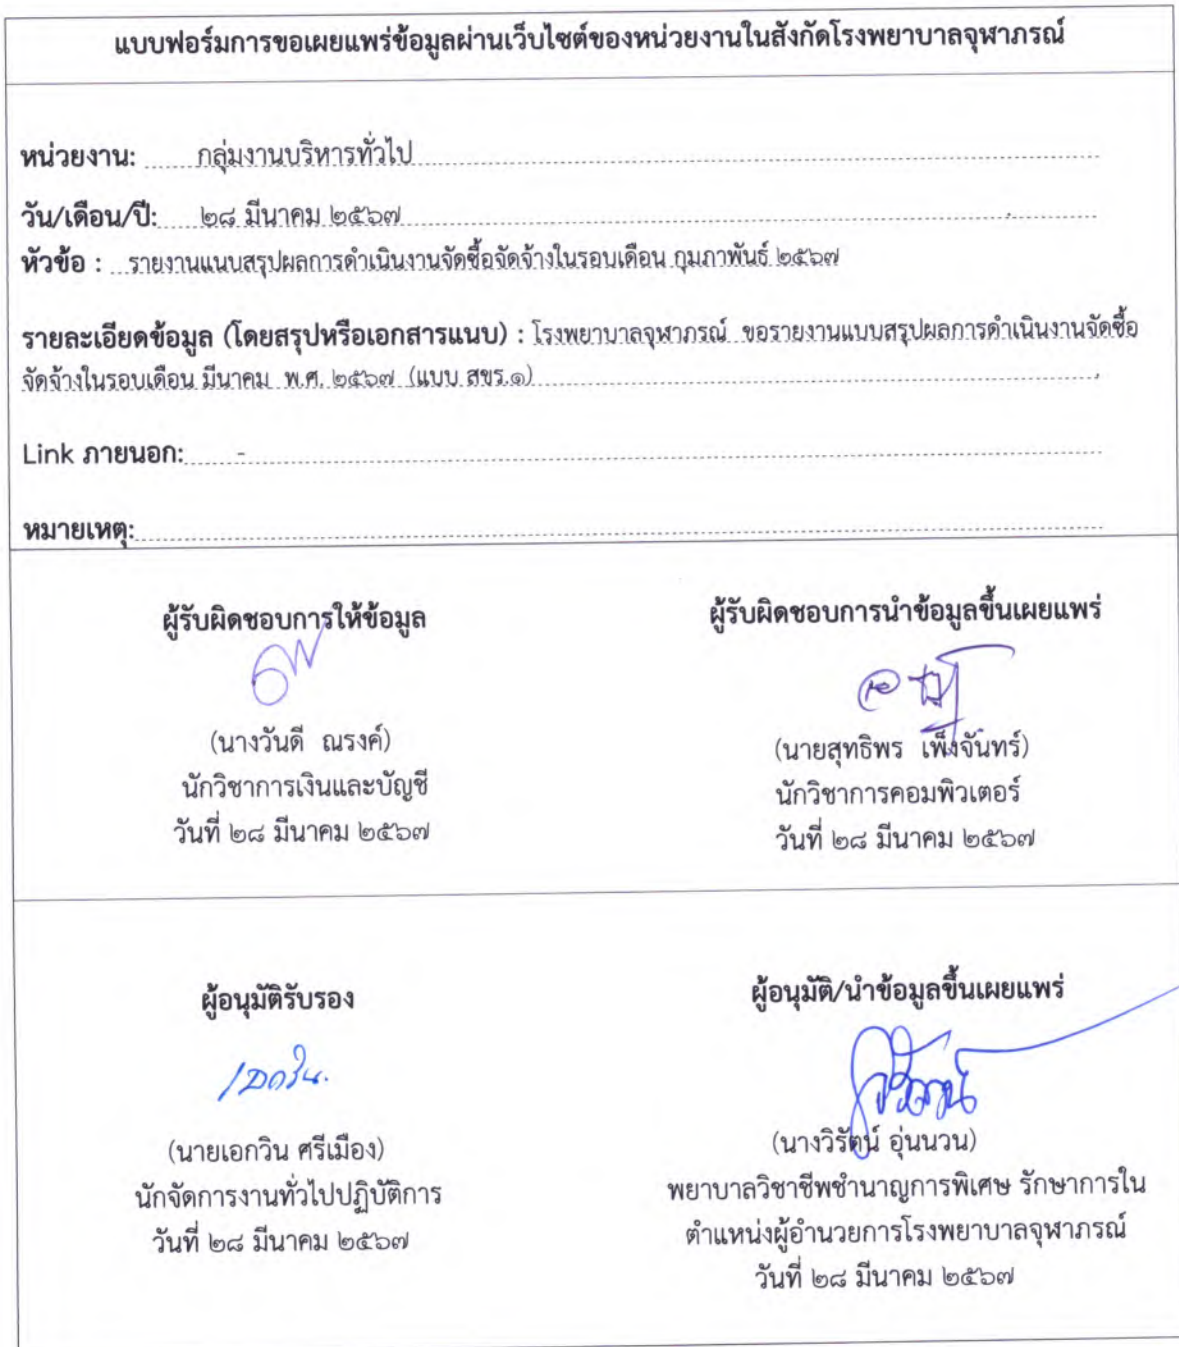 แบบฟอร์มการขอเผยแพร่ข้อมูลผ่านเว็บไซต์ของหน่วยงานในสังกัดโรงพยาบาลจุฬาภรณ์
หน่วยงาน: กลุ่มงานบริหารทั่วไป
วัน/เดือน/ปี: ๒๘ มีนาคม ๒๕๖๗
หัวข้อ : รายงานแนบสรุปผลการดำเนินงานจัดซื้อจัดจ้างในรอบเดือน กุมภาพันธ์ ๒๕๖๗
รายละเอียดข้อมูล (โดยสรุปหรือเอกสารแนบ) : โรงพยาบาลจุฬาภรณ์ ขอรายงานแบบสรุปผลการดำเนินงานจัดซื้อ
จัดจ้างในรอบเดือน มีนาคม พ.ศ. ๒๕๖๗ (แบบ สขร.๑)
Link ภายนอก: -
หมายเหตุ:
ผู้รับผิดชอบการให้ข้อมูล
(นางวันดี ณรงค์)
นักวิชาการเงินและบัญชี
วันที่ ๒๘ มีนาคม ๒๕๖๗
ผู้รับผิดชอบการนำข้อมูลขึ้นเผยแพร่
(นายสุทธิพร เพ็งจันทร์)
นักวิชาการคอมพิวเตอร์
วันที่ ๒๘ มีนาคม ๒๕๖๗
ผู้อนุมัติรับรอง
เอกวิน.
(นายเอกวิน ศรีเมือง)
นักจัดการงานทั่วไปปฏิบัติการ
วันที่ ๒๘ มีนาคม ๒๕๖๗
ผู้อนุมัติ/นำข้อมูลขึ้นเผยแพร่
(นางวิรัตน์ อุ่นนวน)
พยาบาลวิชาชีพชำนาญการพิเศษ รักษาการใน
ตำแหน่งผู้อำนวยการโรงพยาบาลจุฬาภรณ์
วันที่ ๒๘ มีนาคม ๒๕๖๗